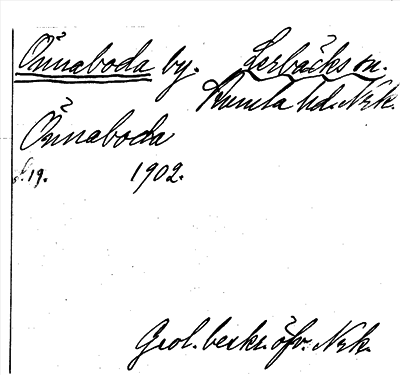 Önnaboda by. Lerbäcks sn.
Kumla hd. Nrk.
Önnaboda
s. 19. 1902.
Geol. beskr. öfv. Nrk.